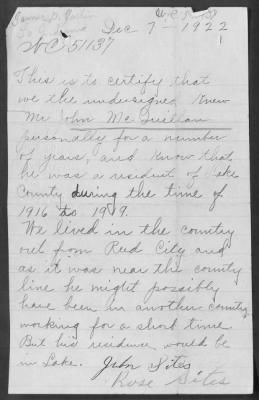 Dec 7 - 1922
WC 51137
This is to certify that
we the undersigned Knew
Mr John McQuillan
personally for a number
of years, and know that
he was a resident of Lake
County during the time of
1916 to 1919.
We lived in the country
out from Reed City and
as it was near the county
line he might possibly
have been in another county
working for a short time
But his residence would be
in Lake.
John Sites
Rose Sites